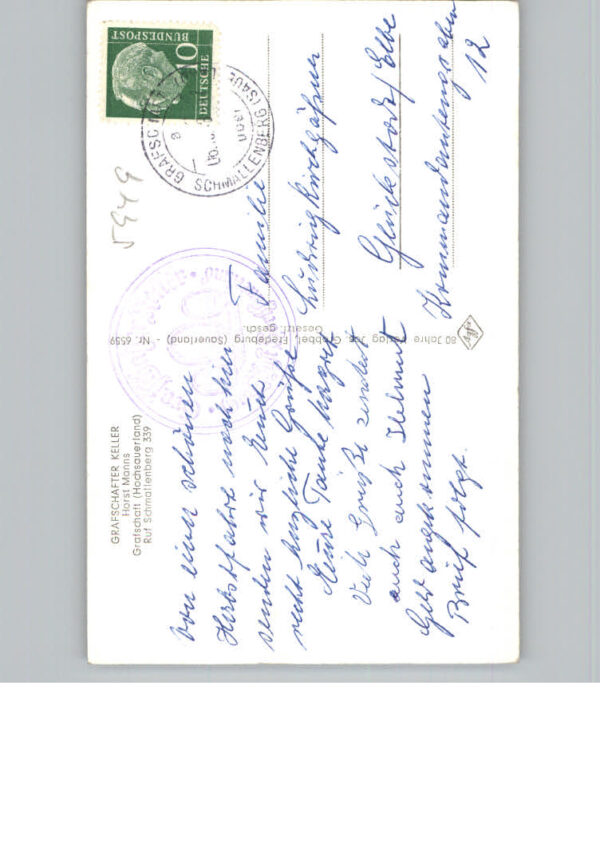 GRAFSCHAFTER KELLER
Horst Manns
Grafschaft (Hochsauerland)
Ruf Schmallenberg 339
Von einer schönen
Herbstfahrt nach hier
senden wir Euch
recht herzliche Grüße
Eure Tante Margret
Viele Grüße sendet
auch auch Helmut
Geld angekommen
Brief folgt.
80 Jahre Verlag Jos. Grobbel, Fredeburg (Sauerland) - Nr. 6559
Gesetzl. gesch.
Agfa
5949
DEUTSCHE
BUNDESPOST
10
SCHMALLENBERG (SAUERL
Familie
Ludwig Kirchgäßner
Glückstadt/Elbe
Kommandantengraben
12